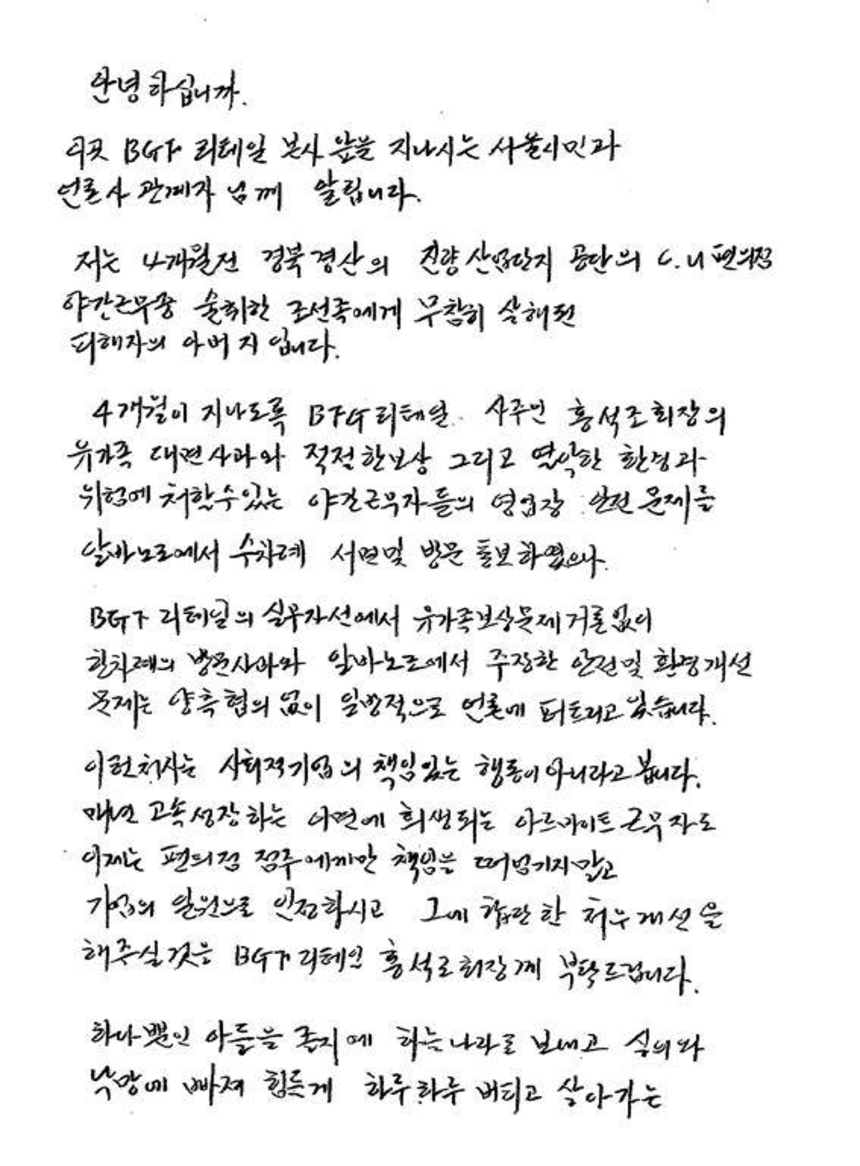 안녕하십니까.
이곳 BGF 리테일 본사 앞을 지나시는 서울시민과
언론사 관계자 님께 알립니다.
저는 4개월전 경북경산의 진량산업단지 공단의 C.U 편의점
야간근무중 술취한 조선족에게 무참히 살해된
피해자의 아버지 입니다.
4개월이 지나도록 BFG리테일 사주인 홍석조회장의
유가족 대면사과와 적절한보상 그리고 열악한 환경과
위험에 처할수있는 야간근무자들의 영업장 안전문제를
알바노조에서 수차례 서면및 방문 통보하였으나.
BGF 리테일의 실무자선에서 유가족보상문제거론없이
한차례의 방문사과와 알바노조에서 주장한 안전및 환경개선
문제는 양측협의 없이 일방적으로 언론에 퍼트리고 있습니다.
이런처사는 사회적기업의 책임있는 행동이아니라고 봅니다.
매년 고속성장하는 이면에 희생되는 아르바이트 근무자도
이제는 편의점 점주에게만 책임을 떠넘기지말고
기업의 일원으로 인정하시고 그에 합당한 처우개선을
해주실것을 BGF리테일 홍석조회장께 부탁드립니다.
하나뿐인 아들을 졸지에 하늘나라로 보내고 실의와
낙망에 빠져 힘든게 하루하루 버티고 살아가는